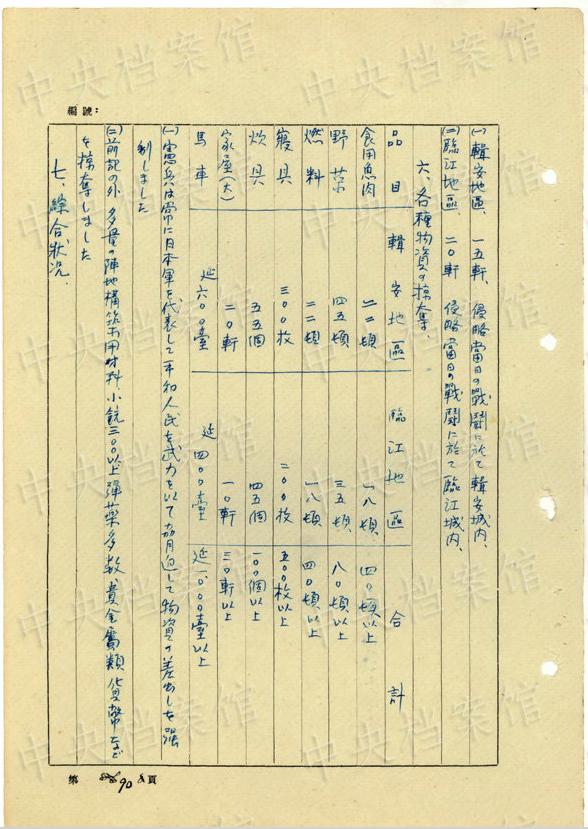 編號:
(一) 輯安地區、一五軒、侵略當日の戰鬪に於て輯安城内、
(二) 臨江地區、二〇軒 侵略當日の戰鬪に於て臨江城内、
六、各種物資の掠奪、
品目 輯安地區 臨江地區 合計
食用魚肉 二二頓 一八頓 四〇頓以上
野菜 四五頓 三五頓 八〇頓以上
燃料 二二頓 一八頓 四〇頓以上
寢具 三〇〇枚 二〇〇枚 五〇〇枚以上
炊具 五五個 四五個 一〇〇個以上
家屋(大) 二〇軒 一〇軒 三〇軒以上
馬車 延六〇〇臺 延四〇〇臺 延一.〇〇〇臺以上
(一) 憲兵は常に日本軍を代表して平和人民を武力を以て脅迫して物資の差出しを强
制しました
(二) 前記の外 多量の陣地構筑用材料、小銃三〇〇以上 彈藥多数 貴金屬類 貨幣など
を掠奪しました
七、綜合狀况.
第 90 頁
中央档案馆